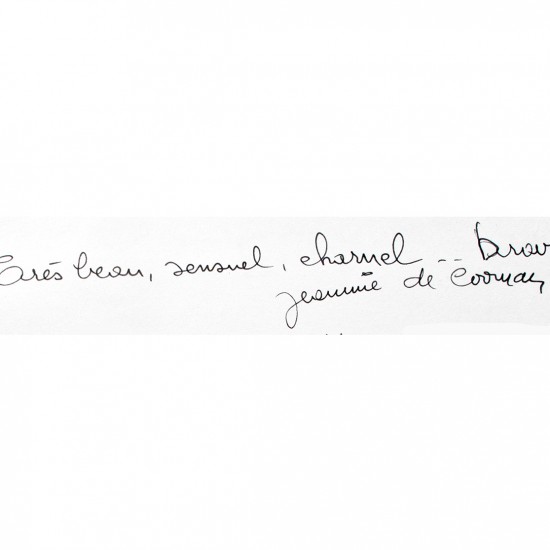 Très beau, sensuel, charnel .. brav
Jeannie de